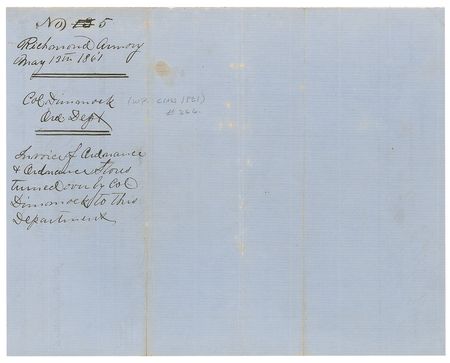 No 15 5
Richmond Armory
May 12th 1861
Col Dimmock (W.P. Class 1821)
Ord Dept # 266.
Invoice of Ordnance
& Ordnance Stores
turned over by Col
Dimmock to this
Department